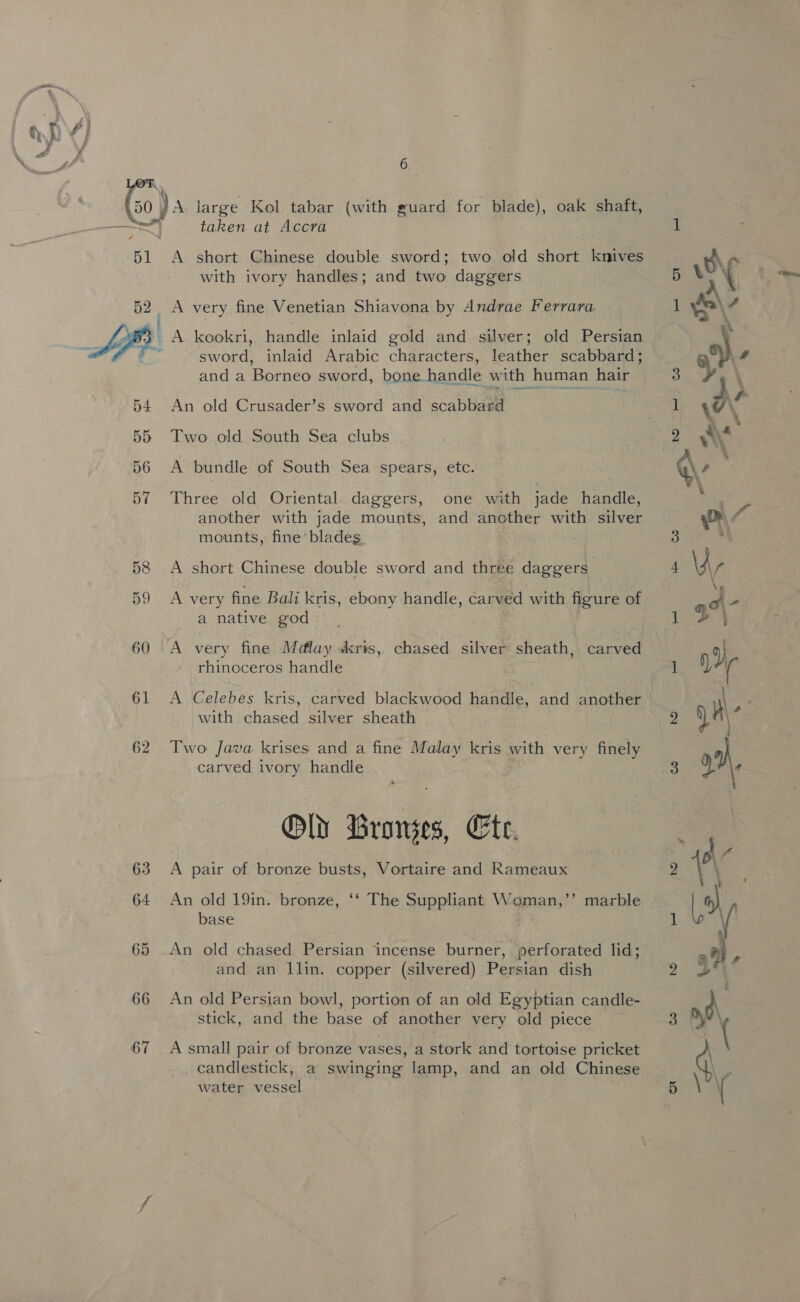 6
LOT.
50 A large Kol tabar (with guard for blade), oak shaft,
taken at Accra 1
51 A short Chinese double sword; two old short knives
with ivory handles; and two daggers 5
52 A very fine Venetian Shiavona by Andrae Ferrara 1
53 A kookri, handle inlaid gold and silver; old Persian
sword, inlaid Arabic characters, leather scabbard;
and a Borneo sword, bone handle with human hair 3
54 An old Crusader's sword and scabbard 1
55 Two old South Sea clubs 2
56 A bundle of South Sea spears, etc.
57 Three old Oriental daggers, one with jade handle,
another with jade mounts, and another with silver
mounts, fine blades 3
58 A short Chinese double sword and three daggers 4
59 A very fine Bali kris, ebony handle, carved with figure of
a native god 1
60 A very fine Malay kris, chased silver sheath, carved
rhinoceros handle 1
61 A Celebes kris, carved blackwood handle, and another
with chased silver sheath 2
62 Two Java krises and a fine Malay kris with very finely
carved ivory handle 3
Old Bronzes, Etc.
63 A pair of bronze busts, Vortaire and Rameaux 2
64 An old 19in. bronze, “ The Suppliant Woman,” marble
base 1
65 An old chased Persian incense burner, perforated lid;
and an 11in. copper (silvered) Persian dish 2
66 An old Persian bowl, portion of an old Egyptian candle-
stick, and the base of another very old piece 3
67 A small pair of bronze vases, a stork and tortoise pricket
candlestick, a swinging lamp, and an old Chinese
water vessel 5